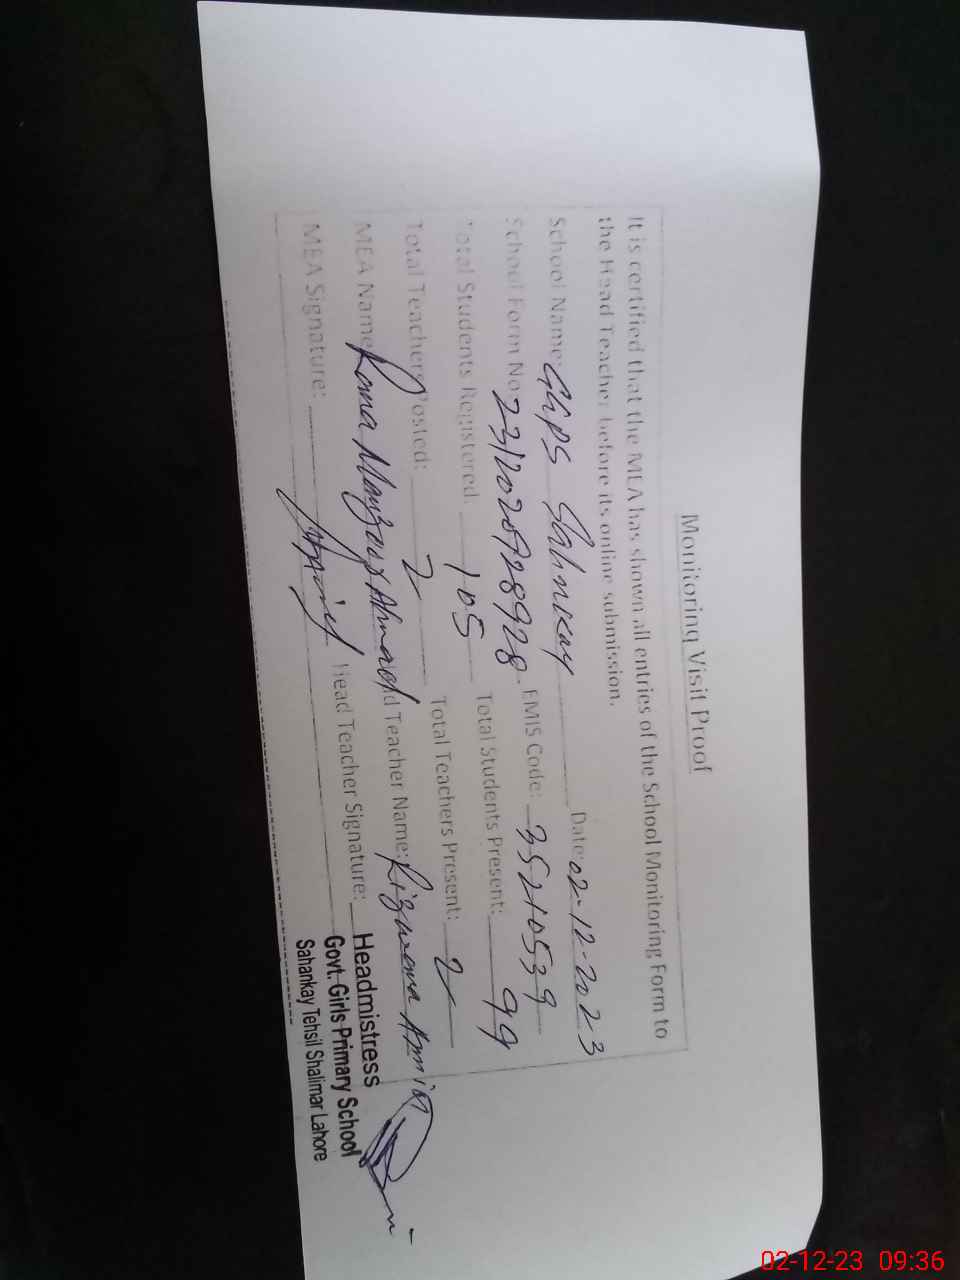 Monitoring Visit Proof
It is certified that the MEA has shown all entries of the School Monitoring Form to
the Head Teacher before its online submission.
School Name: GGPS Sahnkay Date: 02-12-2023
School Form No: 2312020928928 EMIS Code: 35210539
Total Students Registered: 105 Total Students Present: 99
Total Teachers Posted: 2 Total Teachers Present: 2
MEA Name: Rana Manzoor Ahmad Head Teacher Name: Rizwana Amin
MEA Signature: Head Teacher Signature:
Headmistress
Govt. Girls Primary School
Sahankay Tehsil Shalimar Lahore
02-12-23 09:36